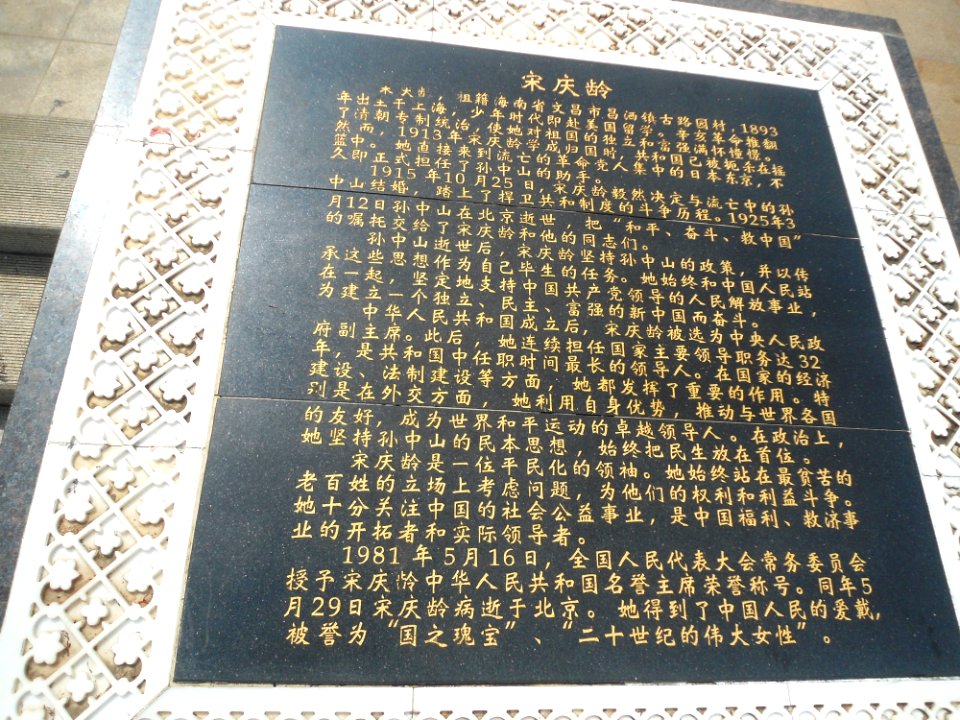 宋庆龄
宋庆龄，祖籍海南省文昌市昌洒镇古路园村，1893
年出生于上海，少年时代即赴美国留学。辛亥革命推翻
了清朝专制统治，使她对祖国的独立和富强满怀憧憬。
然而，1913年宋庆龄学成归国时，共和国已被扼杀在摇
篮中。她直接来到流亡的革命党人集中的日本东京，不
久即正式担任了孙中山的助手。
1915年10月25日，宋庆龄毅然决定与流亡中的孙
中山结婚，踏上了捍卫共和制度的斗争历程。1925年3
月12日孙中山在北京逝世，把“和平、奋斗、救中国”
的嘱托交给了宋庆龄和他的同志们。
孙中山逝世后，宋庆龄坚持孙中山的政策，并以传
承这些思想作为自己毕生的任务。她始终和中国人民站
在一起，坚定地支持中国共产党领导的人民解放事业，
为建立一个独立、民主、富强的新中国而奋斗。
中华人民共和国成立后，宋庆龄被选为中央人民政
府副主席。此后，她连续担任国家主要领导职务达32
年，是共和国中任职时间最长的领导人。在国家的经济
建设、法制建设等方面，她都发挥了重要的作用。特
别是在外交方面，她利用自身优势，推动与世界各国
的友好，成为世界和平运动的卓越领导人。在政治上，
她坚持孙中山的民本思想，始终把民生放在首位。
宋庆龄是一位平民化的领袖。她始终站在最贫苦的
老百姓的立场上考虑问题，为他们的权利和利益斗争。
她十分关注中国的社会公益事业，是中国福利、救济事
业的开拓者和实际领导者。
1981年5月16日，全国人民代表大会常务委员会
授予宋庆龄中华人民共和国名誉主席荣誉称号。同年5
月29日宋庆龄病逝于北京。她得到了中国人民的爱戴，
被誉为“国之瑰宝”、“二十世纪的伟大女性”。